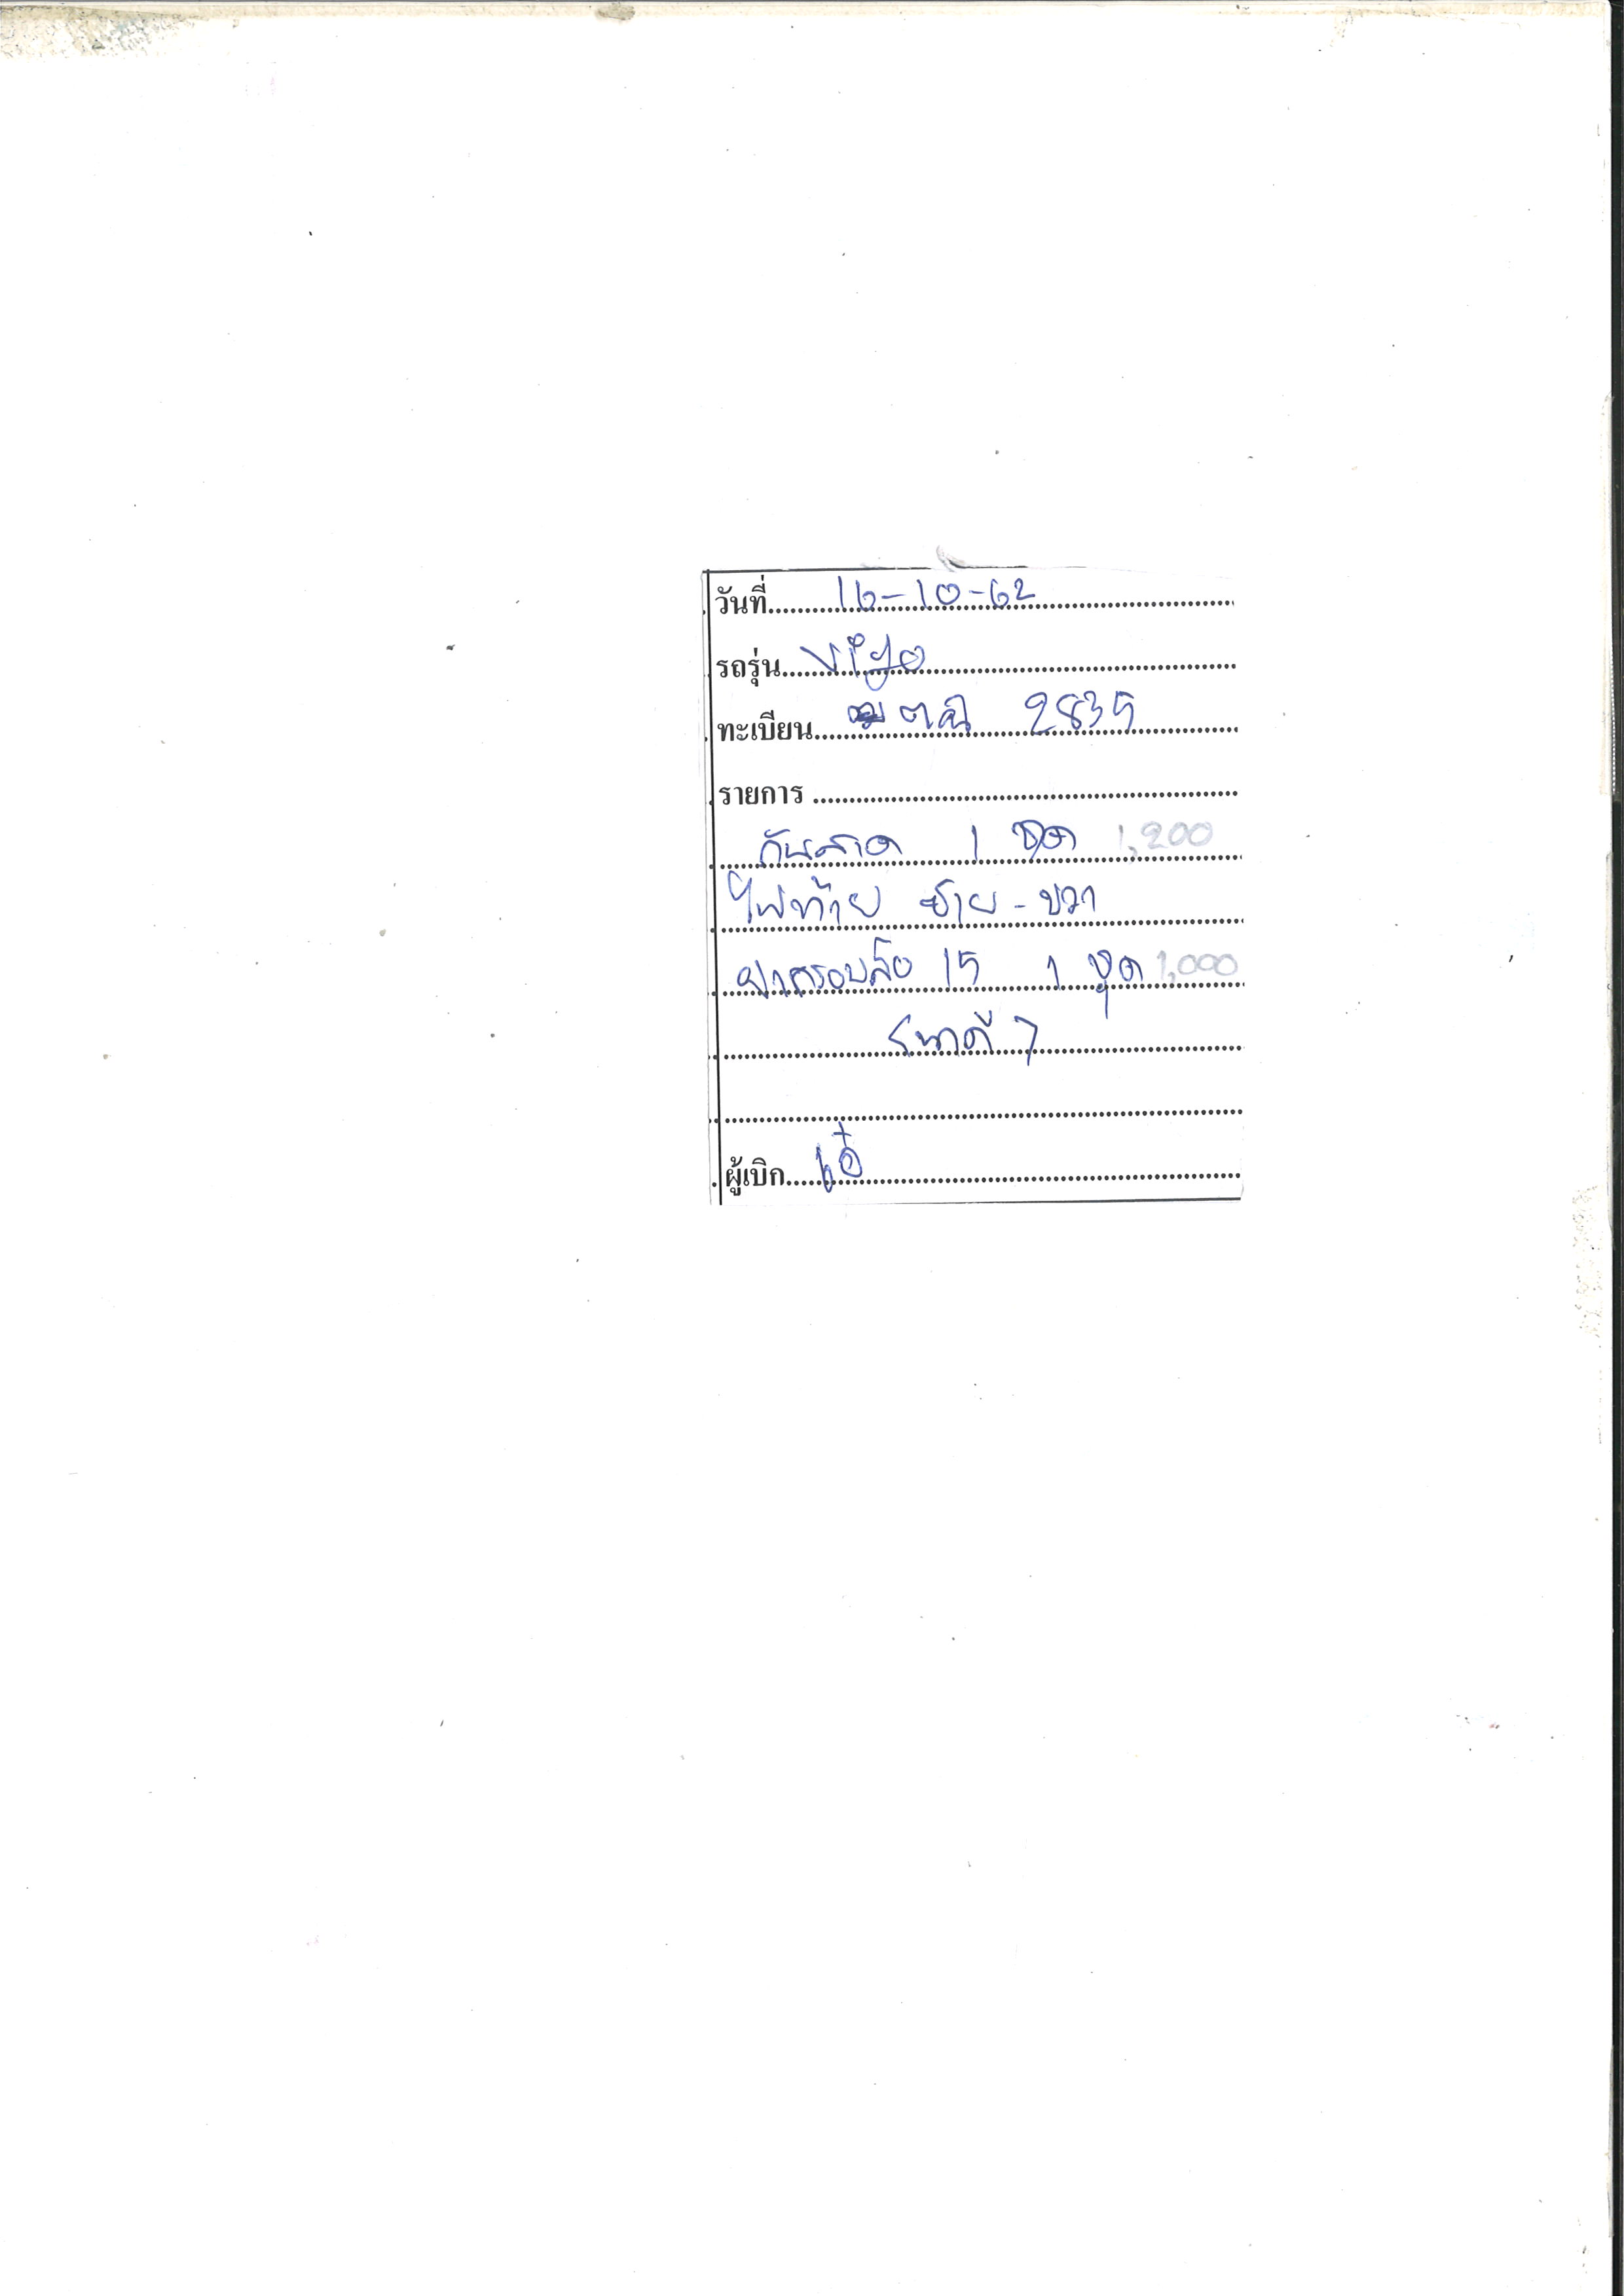 วันที่ 16-10-62
รถรุ่น vigo
ทะเบียน ตฉ 2835
รายการ
กันสาด 1 ชุด 1,200
ไฟท้าย ซ้าย - ขวา
ฝาครอบล้อ 15 1 ชุด 1,000
ผู้เบิก เอ๋